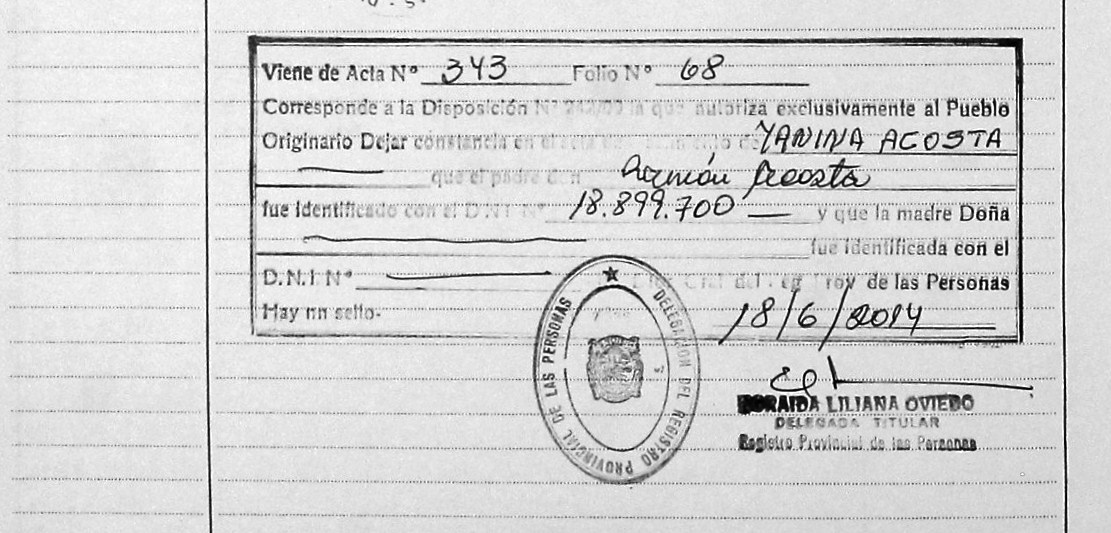 Viene de Acta N° 343 Folio N° 68
Corresponde a la Disposición N° 242/02 la que autoriza exclusivamente al Pueblo
Originario Dejar constancia en el acta de nacimiento de YANINA ACOSTA
que el padre don Ramón Acosta
fue identificado con el D.N.I. N° 18.899.700 y que la madre Doña
fue identificada con el
D.N.I. N° del de las Personas
Hay un sello-
18/6/2014
DELEGACION DEL REGISTRO PROVINCIAL DE LAS PERSONAS
LILIANA OVIEDO
DELEGADA TITULAR
Registro Provincial de las Personas